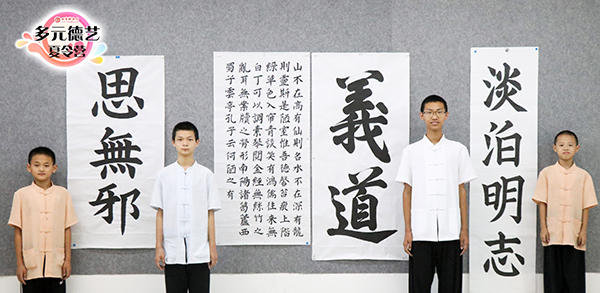 多元德艺
夏令营
思無邪
山不在高有仙則名水不在深有龍
則靈斯是陋室惟吾德馨苔痕上階
綠草色入簾青談笑有鴻儒往來無
白丁可以調素琴閱金經無絲竹之
亂耳無案牘之勞形南陽諸葛廬西
蜀子雲亭孔子云何陋之有
義道
淡泊明志